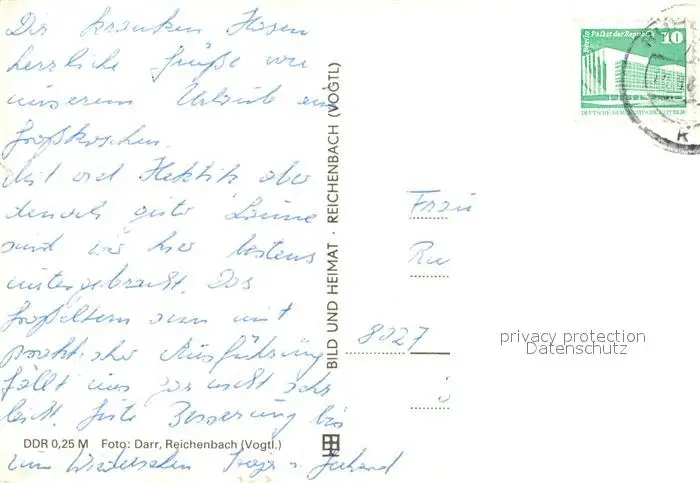 Der kranken Hasen
herzliche Grüße von
unserem Urlaub in
Großkoschen.
Mit viel Hektik aber
dennoch guter Laune
sind wir hier bestens
untergebracht. Das
Großeltern sein mit
praktischer Ausführung
fällt uns gar nicht sehr
leicht. Gute Besserung bis
zum Wiedersehen u. Gerhard
DDR 0,25 M Foto: Darr, Reichenbach (Vogtl.)
BILD UND HEIMAT · REICHENBACH (VOGTL)
Berlin Palast der Republik
10
DEUTSCHE DEMOKRATISCHE REPUBLIK
Frau
8027
privacy protection
Datenschutz